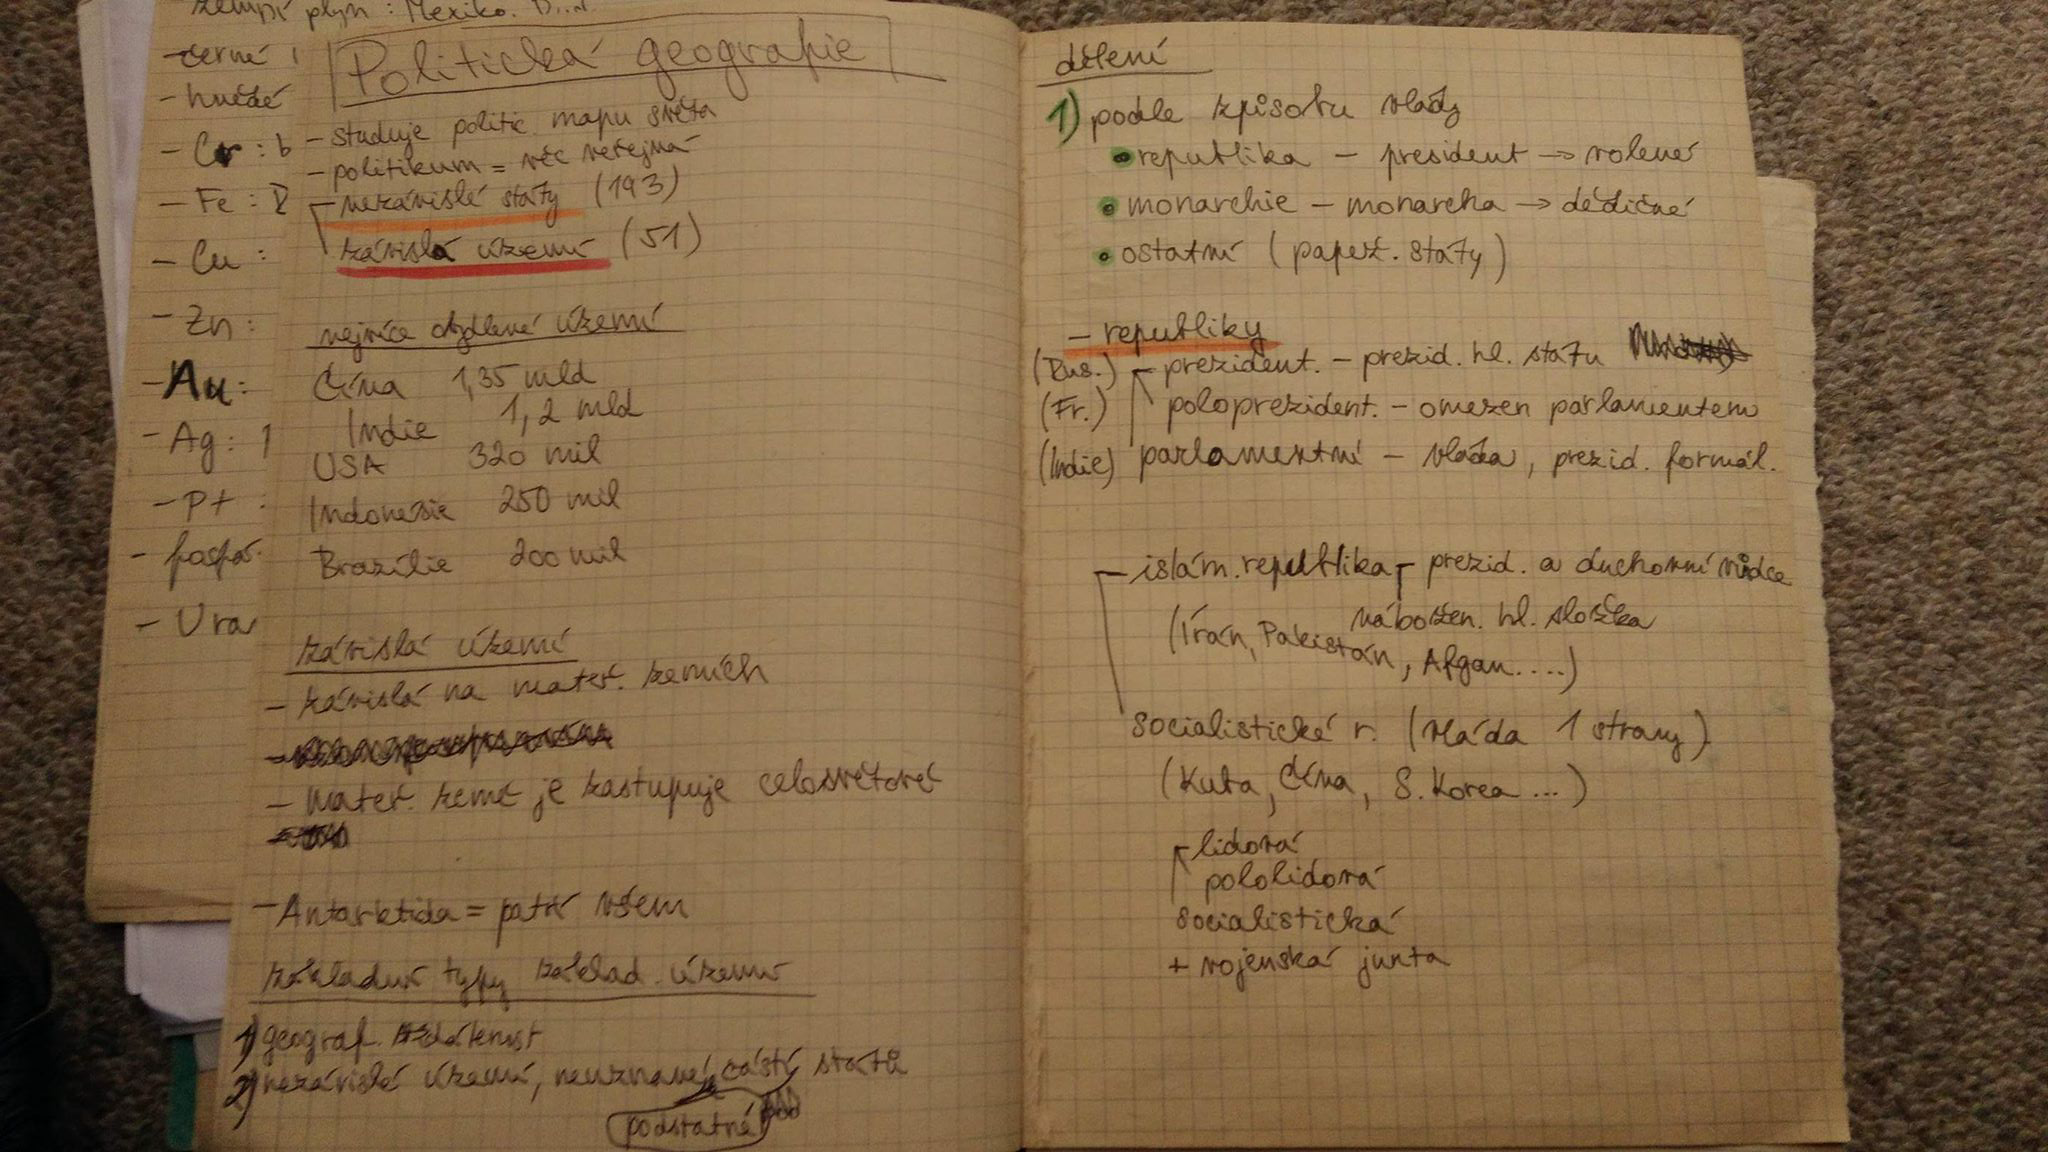 zemní plyn : Mexiko.
- černé
- hnědé
- Cr : b
- Fe :
- Cu :
- Zn :
- Au :
- Ag : 1
- Pt :
- fosfá
- Ura
Politická geografie
- studuje politic. mapu světa
- politikum = věc veřejná
- nezávislé státy (193)
závislá území (51)
nejvíce obydlené území
Čína 1,35 mld
Indie 1,2 mld
USA 320 mil
Indonésie 250 mil
Brazílie 200 mil
závislá území
- závislá na mateř. zemích
- Mateř. země je zastupuje celosvětově
- Antarktida = patří všem
základní typy základ. území
1) geograf. vzdálenost
2) nezávislé území, neuznané části států
podstatné
dělení
1) podle způsobu vlády
• republika - president → volené
• monarchie - monarcha → dědičné
• ostatní (papež. státy)
- republiky
(Rus.) - prezident. - prezid. hl. státu
(Fr.) poloprezident. - omezen parlamentem
(Indie) parlamentní - vláda, prezid. formál.
- islám. republika - prezid. a duchovní vůdce
nábožen. hl. složka
(Írán, Pakistán, Afgan....)
socialistické r. (vláda 1 strany)
(Kuba, Čína, S. Korea ...)
lidová
pololidová
socialistická
+ vojenská junta